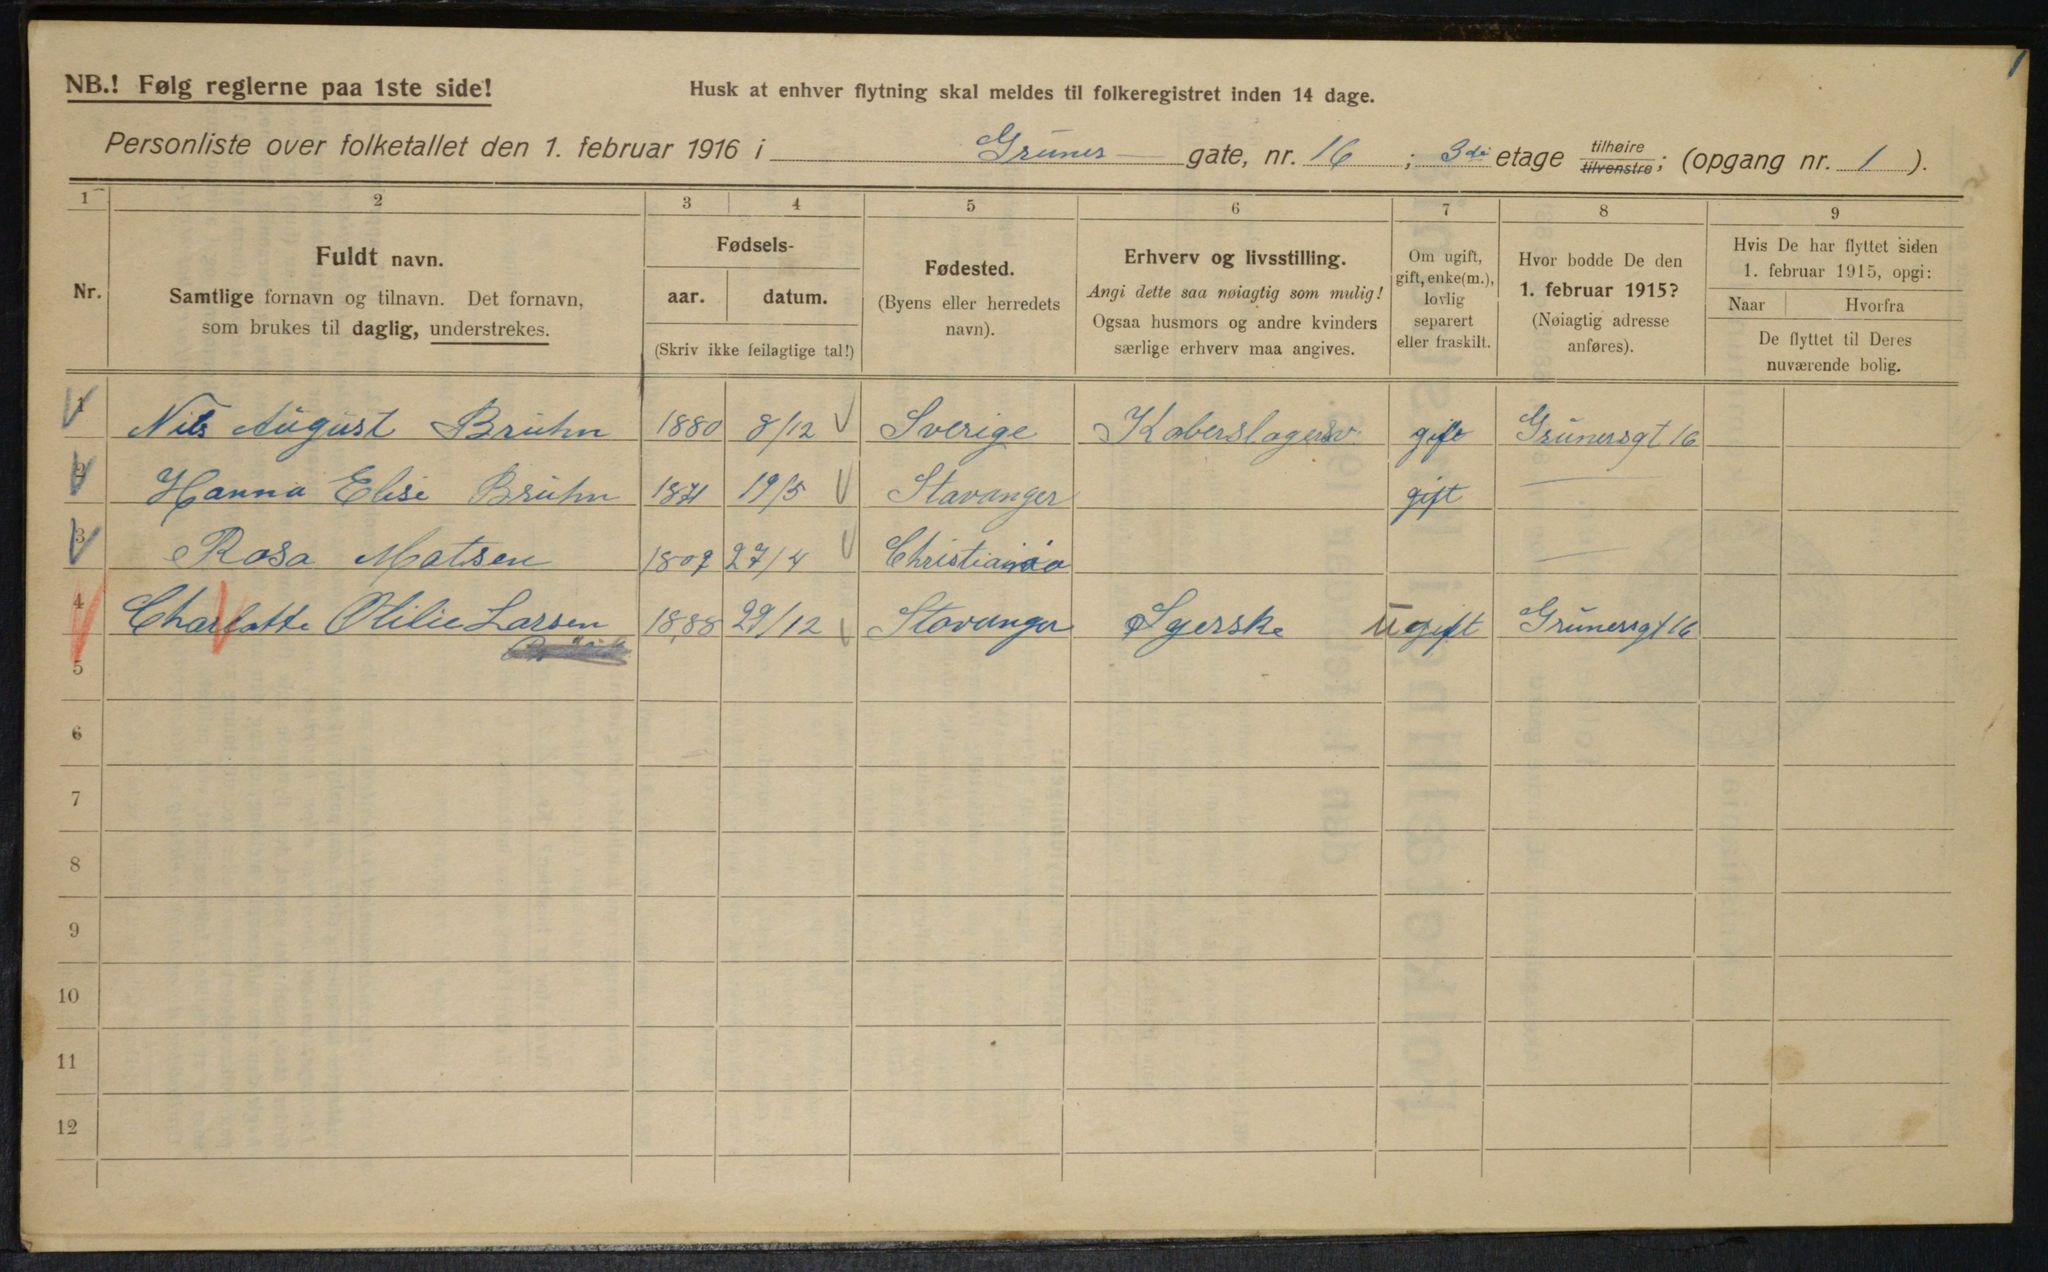 NB.! Følg reglerne paa 1ste side!
Husk at enhver flytning skal meldes til folkeregistret inden 14 dage.
Personliste over folketallet den 1. februar 1916 i Grüners gate, nr. 16; 3di etage tilhøire tilvenstre; (opgang nr. 1).
1 2 3 4 5 6 7 8 9
Nr.
Fuldt navn.
Samtlige fornavn og tilnavn. Det fornavn,
som brukes til daglig, understrekes.
Fødsels-
aar. datum.
(Skriv ikke feilagtige tal!)
Fødested.
(Byens eller herredets
navn).
Erhverv og livsstilling.
Angi dette saa nøiagtig som mulig!
Ogsaa husmors og andre kvinders
særlige erhverv maa angives.
Om ugift,
gift, enke(m.),
lovlig
separert
eller fraskilt.
Hvor bodde De den
1. februar 1915?
(Nøiagtig adresse
anføres).
Hvis De har flyttet siden
1. februar 1915, opgi:
Naar Hvorfra
De flyttet til Deres
nuværende bolig.
1 Nils August Brühn 1880 8/12 Sverige Koberslagersv. gift Grünersgt 16
2 Hanna Elise Brühn 1871 19/5 Stavanger gift —
3 Rosa Matsen 27/4 Christiania —
4 Charlotte Otilie Larsen 1888 29/12 Stavanger Syerske Ugift Grünersgt 16
5
6
7
8
9
10
11
12